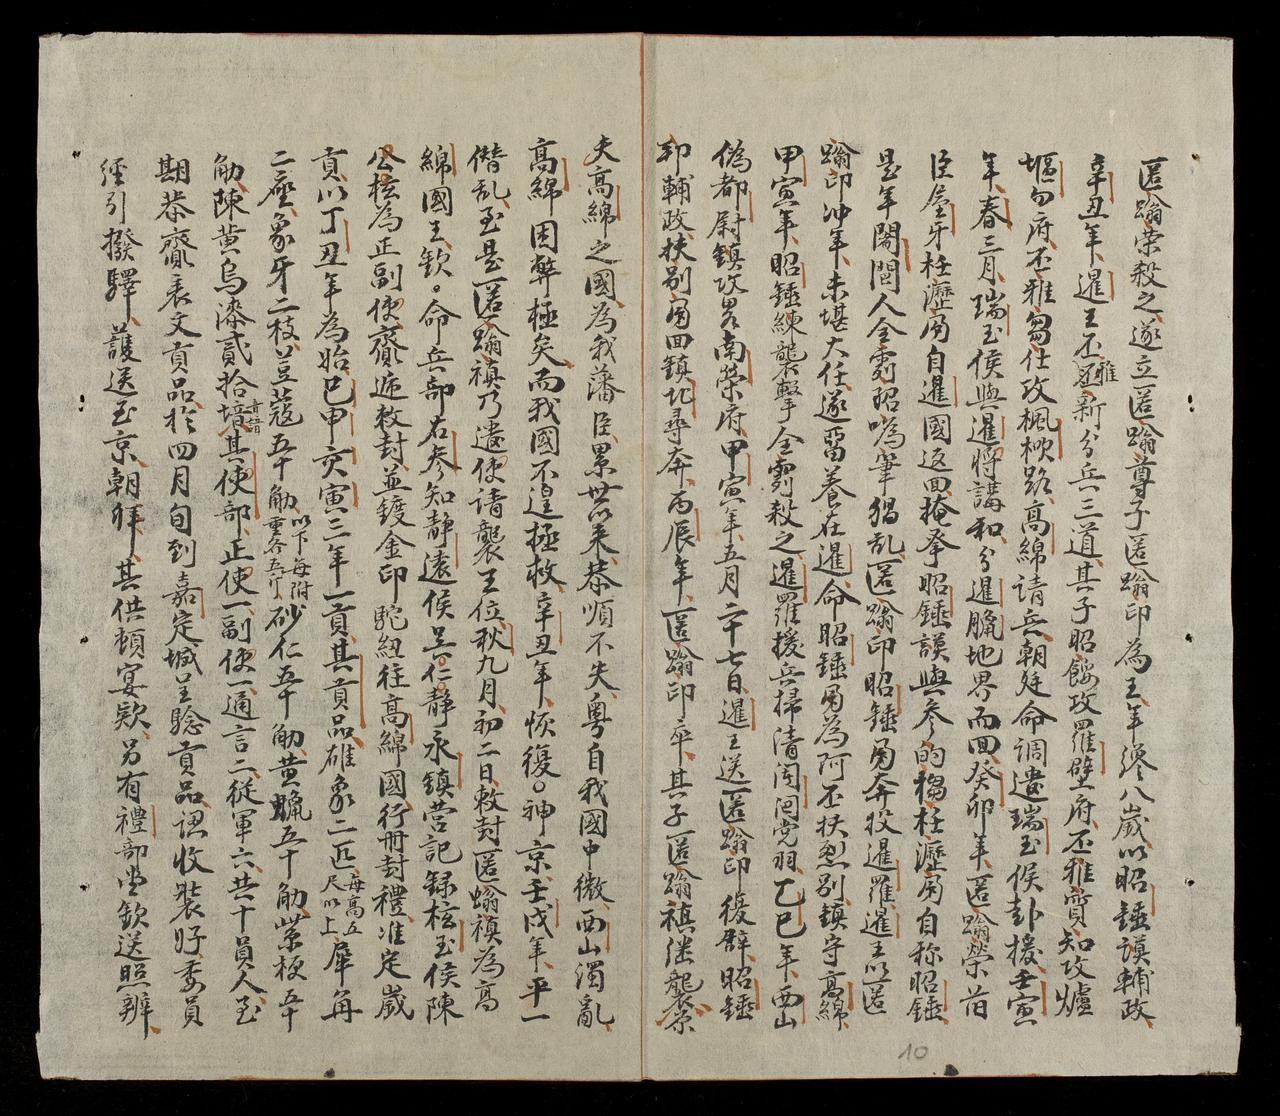 匿螉荣殺之遂立匿螉尊子匿螉印為王年纔八歲以昭錘謨輔政
辛丑年暹王丕雅新分兵三道其子昭餒攻羅壁府丕雅賁知攻爐
堰勿府丕雅芻仕攻楓楸路高綿請兵朝廷命調遣瑞玉侯赴援壬寅
年春三月瑞玉侯與暹將講和分暹臘地界而回癸卯年匿螉榮首
臣屋牙枉瀝甬自暹國返回掩拏昭錘謨與參的榻枉瀝甬自称昭錘
是年闍閭人全霧昭喎筆猖乱匿螉印昭錘甬奔投暹羅暹王以匿
螉印冲年未堪大任遂畱養在暹命昭錘甬為阿丕扶怱別鎮守高綿
甲寅年昭錘練襲擊全霧殺之暹羅援兵掃清闍閭党羽乙巳年西山
偽都尉鎮攻畧南榮府甲寅年五月二十七日暹王送匿螉印復辟昭錘
邦輔政扶别甬回鎮北尋奔丙辰年匿螉印卒其子匿螉禛继襲蒙
夫高綿之國為我藩臣累世以来恭順不失粤自我國中微西山濁亂
高綿困弊極矣而我國不遑拯救辛丑年恢復神京壬戌年平一
僭乱至是匿螉禛乃遣使请襲王位秋九月初二日敕封匿螉禛為高
綿國王欽命兵部右参知静遠侯吴仁静永鎮营記録校玉侯陳
公枟為正副使齎逓敕封並鍍金印駝紐往高綿國行册封禮准定歲
貢以丁丑年為始巳申亥寅三年一貢其貢品雄象二匹每高五尺以上犀角
二座象牙二枝荳蔲五十觔以下每附重各五斤砂仁五十觔黄蠟五十觔紫梗五十
觔陳黄烏漆貳拾㙛其使部正使一副使一通言二従軍六共十員人至
期恭齎表文貢品於四月旬到嘉定城呈騐貢品認收裝好委員
徑引撥驛護送至京朝拜其供頓宴欵另有禮部堂欽送照辨